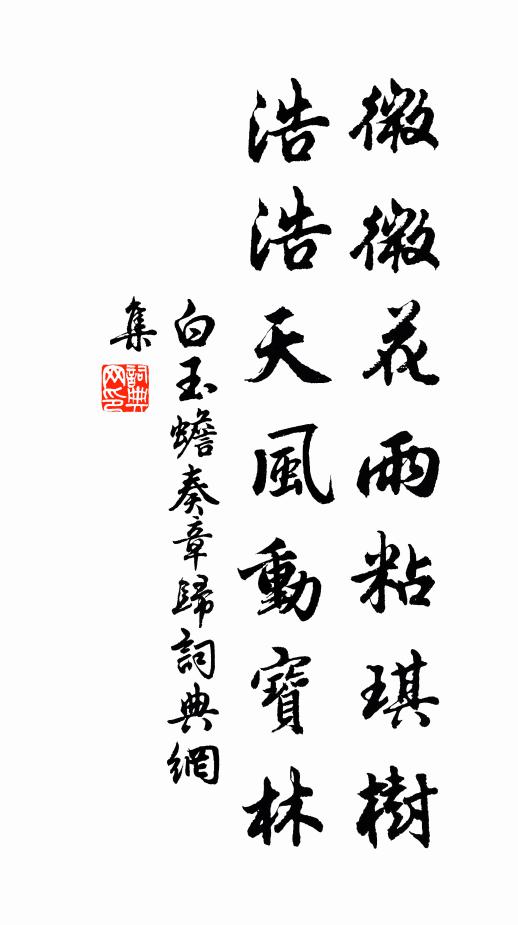 微微花雨粘琪樹
浩浩天風動寶林
白玉蟾奏章歸詞典網
集
詞典网印